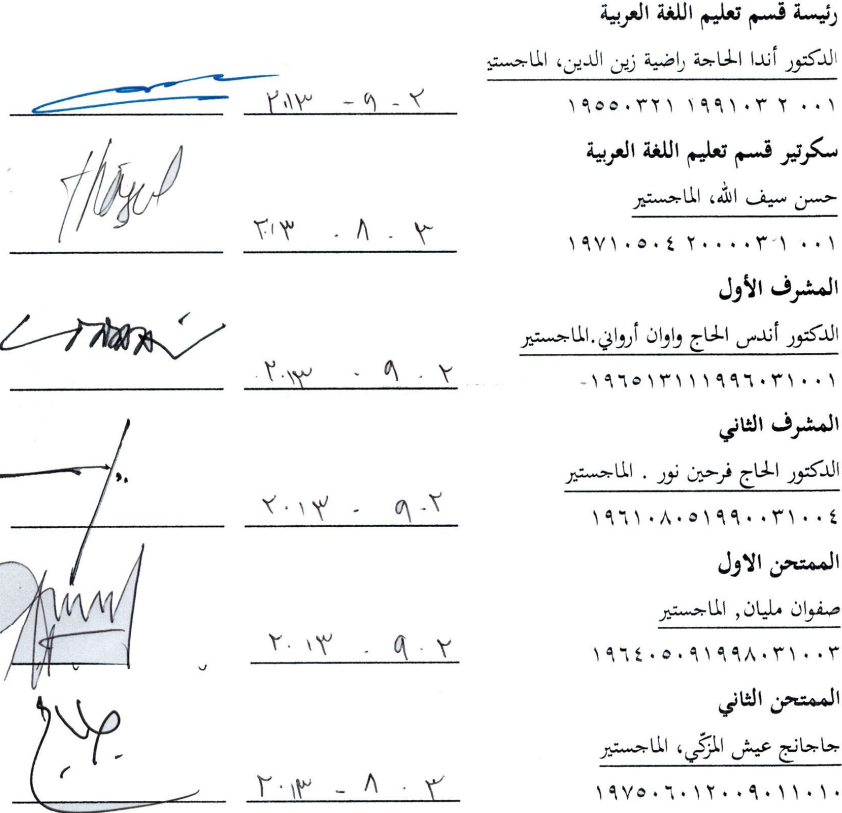 رئيسة قسم تعليم اللغة العربية
الدكتور أندا الحاجة راضية زين الدين، الماجستير
١٩٥٥٠٣٢١ ١٩٩١٠٣ ٢ ٠٠١
٢ - ٩ - ٢٠١٣
سكرتير قسم تعليم اللغة العربية
حسن سيف الله، الماجستير
١٩٧١٠٥٠٤ ٢٠٠٠٠٣ ١ ٠٠١
٣ . ٨ . ٢٠١٣
المشرف الأول
الدكتور أندس الحاج واوان أرواني.الماجستير
١٩٦٥١٣١١١٩٩٦٠٣١٠٠١
٢ . ٩ . ٢٠١٣
المشرف الثاني
الدكتور الحاج فرحين نور . الماجستير
١٩٦١٠٨٠٥١٩٩٠٠٣١٠٠٤
٢. ٩ - ٢٠١٣
الممتحن الاول
صفوان مليان, الماجستير
١٩٦٤٠٥٠٩١٩٩٨٠٣١٠٠٣
٢ . ٩ . ٢٠١٣
الممتحن الثاني
جاجانج عيش المزكّي، الماجستير
١٩٧٥٠٦٠١٢٠٠٩٠١١٠١٠
٣ . ٨ - ٢٠١٣